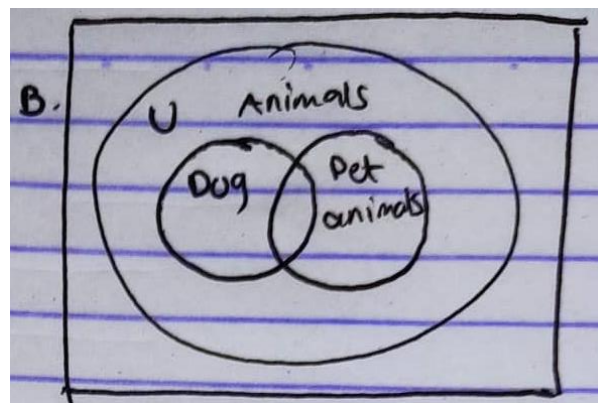 B.
U Animals
Dog Pet
animals